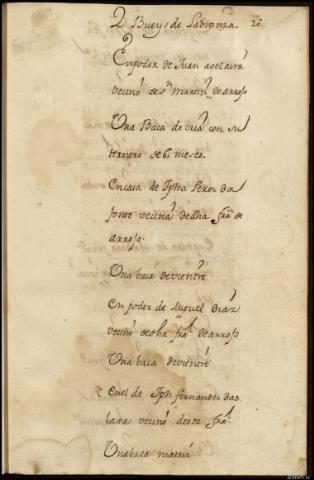 2 Bueys de Labranza. 26
En poder de Juan
vecino de Sn martin de arrojo
Una Baca de cria con su
ternero de 6 meses.
En casa de Perez da
fonte vecina de dha fra de
arrojo.
Una baca de vientre
En poder de Miguel Diaz
vecino de dha fra de arrojo
Una baca de vientre
En el de Jph fernandez das
laras vecino desta fra.
Una baca